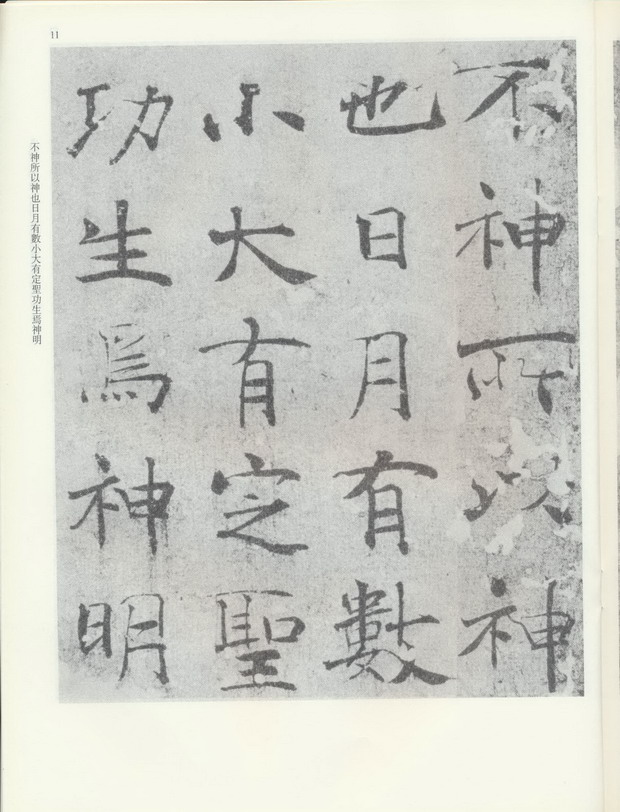 11
不神所以神
也日月有數
小大有定聖
功生焉神明
不神所以神也日月有數小大有定聖功生焉神明